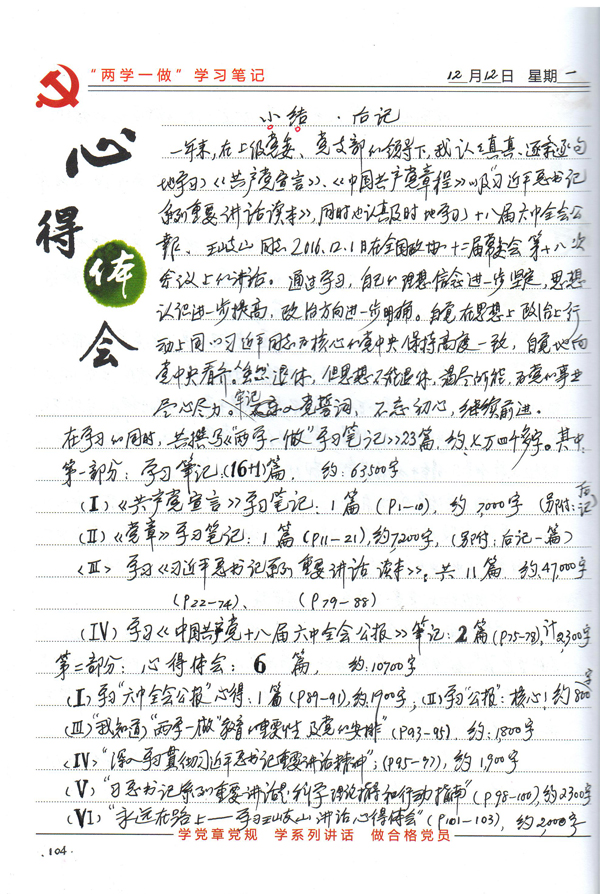 “两学一做” 学习笔记
12月12日 星期一
心得体会
小结 · 后记
一年来,在上级党委、党支部的领导下,我认认真真、逐字逐句
地学习了《共产党宣言》、《中国共产党章程》以及“习近平总书记
系列重要讲话读本”,同时也认真及时地学习了十八届六中全会公
报、王岐山同志2016.12.1日在全国政协十二届常委会第十八次
会议上的讲话。通过学习,自己的理想信念进一步坚定,思想
认识进一步提高,政治方向进一步明确。自觉在思想上政治上行
动上同以习近平同志为核心的党中央保持高度一致,自觉地向
党中央看齐。虽然退休,但思想不能退休,竭尽所能,为党的事业
尽心尽力。牢记入党誓词,不忘初心,继续前进。
在学习的同时,共撰写《“两学一做”学习笔记》23篇,约七万四千多字。其中:
第一部分:学习笔记(16+1)篇, 约:63500字
(I)《共产党宣言》学习笔记:1篇(P1—10),约7,000字(另附:后记)
(II)《党章》学习笔记:1篇(P11—21),约7,200字,(另附:后记一篇)
(III) 学习《习近平总书记系列重要讲话读本》。共11篇 约47,000字
(P22—74)、 (P79—88)
(IV)学习《中国共产党十八届六中全会公报》笔记:2篇(P75—78),计2,300字
第二部分:心得体会:6篇, 约:10700字
(I)学习“六中全会公报”心得:1篇(P89—91),约1900字,(II)学习“公报”:核心1约800字
(III)“我知道了‘两学一做’教育的重要性及党的安排”(P93—95),约:1,800字
(IV)“深入学习贯彻习近平总书记重要讲话精神”;(P95—97),约1,900字
(V)“习总书记系列重要讲话是科学理论指导和行动指南”(P98—100),约2300字
(VI)“永远在路上——学习王岐山讲话心得体会”(P101—103),约2,000字
学党章党规 学系列讲话 做合格党员
.104.